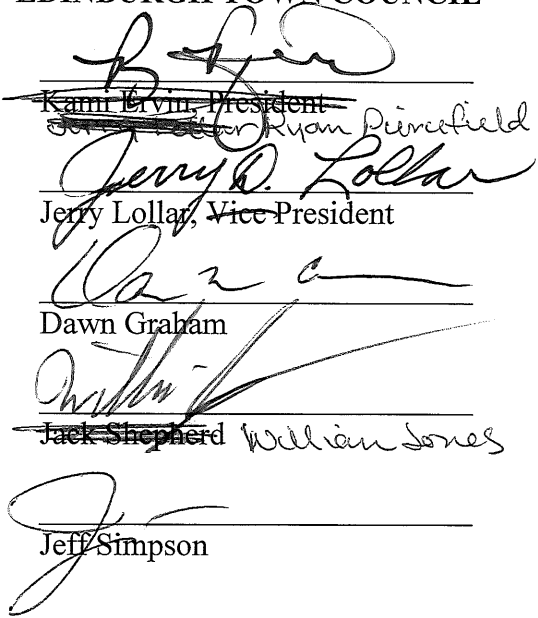 EDINBURGH TOWN COUNCIL
Kami Ervin, President
Ryan Piercefield
Jerry D. Lollar
Jerry Lollar, Vice President
Dawn Graham
Jack Shepherd William Jones
Jeff Simpson